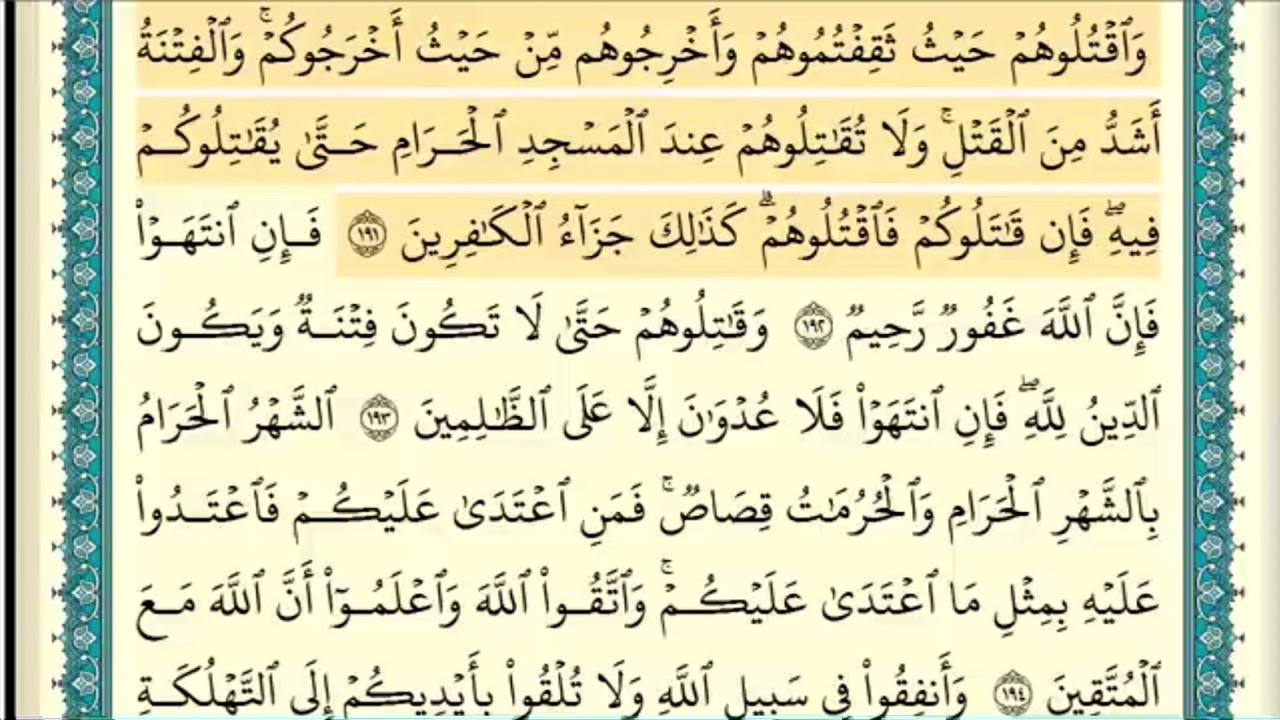 وَٱقۡتُلُوهُمۡ حَيۡثُ ثَقِفۡتُمُوهُمۡ وَأَخۡرِجُوهُم مِّنۡ حَيۡثُ أَخۡرَجُوكُمۡۚ وَٱلۡفِتۡنَةُ
أَشَدُّ مِنَ ٱلۡقَتۡلِۚ وَلَا تُقَٰتِلُوهُمۡ عِندَ ٱلۡمَسۡجِدِ ٱلۡحَرَامِ حَتَّىٰ يُقَٰتِلُوكُمۡ
فِيهِۖ فَإِن قَٰتَلُوكُمۡ فَٱقۡتُلُوهُمۡۗ كَذَٰلِكَ جَزَآءُ ٱلۡكَٰفِرِينَ ١٩١ فَإِنِ ٱنتَهَوۡاْ
فَإِنَّ ٱللَّهَ غَفُورٞ رَّحِيمٞ ١٩٢ وَقَٰتِلُوهُمۡ حَتَّىٰ لَا تَكُونَ فِتۡنَةٞ وَيَكُونَ
ٱلدِّينُ لِلَّهِۖ فَإِنِ ٱنتَهَوۡاْ فَلَا عُدۡوَٰنَ إِلَّا عَلَى ٱلظَّٰلِمِينَ ١٩٣ ٱلشَّهۡرُ ٱلۡحَرَامُ
بِٱلشَّهۡرِ ٱلۡحَرَامِ وَٱلۡحُرُمَٰتُ قِصَاصٞۚ فَمَنِ ٱعۡتَدَىٰ عَلَيۡكُمۡ فَٱعۡتَدُواْ
عَلَيۡهِ بِمِثۡلِ مَا ٱعۡتَدَىٰ عَلَيۡكُمۡۚ وَٱتَّقُواْ ٱللَّهَ وَٱعۡلَمُوٓاْ أَنَّ ٱللَّهَ مَعَ
ٱلۡمُتَّقِينَ ١٩٤ وَأَنفِقُواْ فِي سَبِيلِ ٱللَّهِ وَلَا تُلۡقُواْ بِأَيۡدِيكُمۡ إِلَى ٱلتَّهۡلُكَةِ